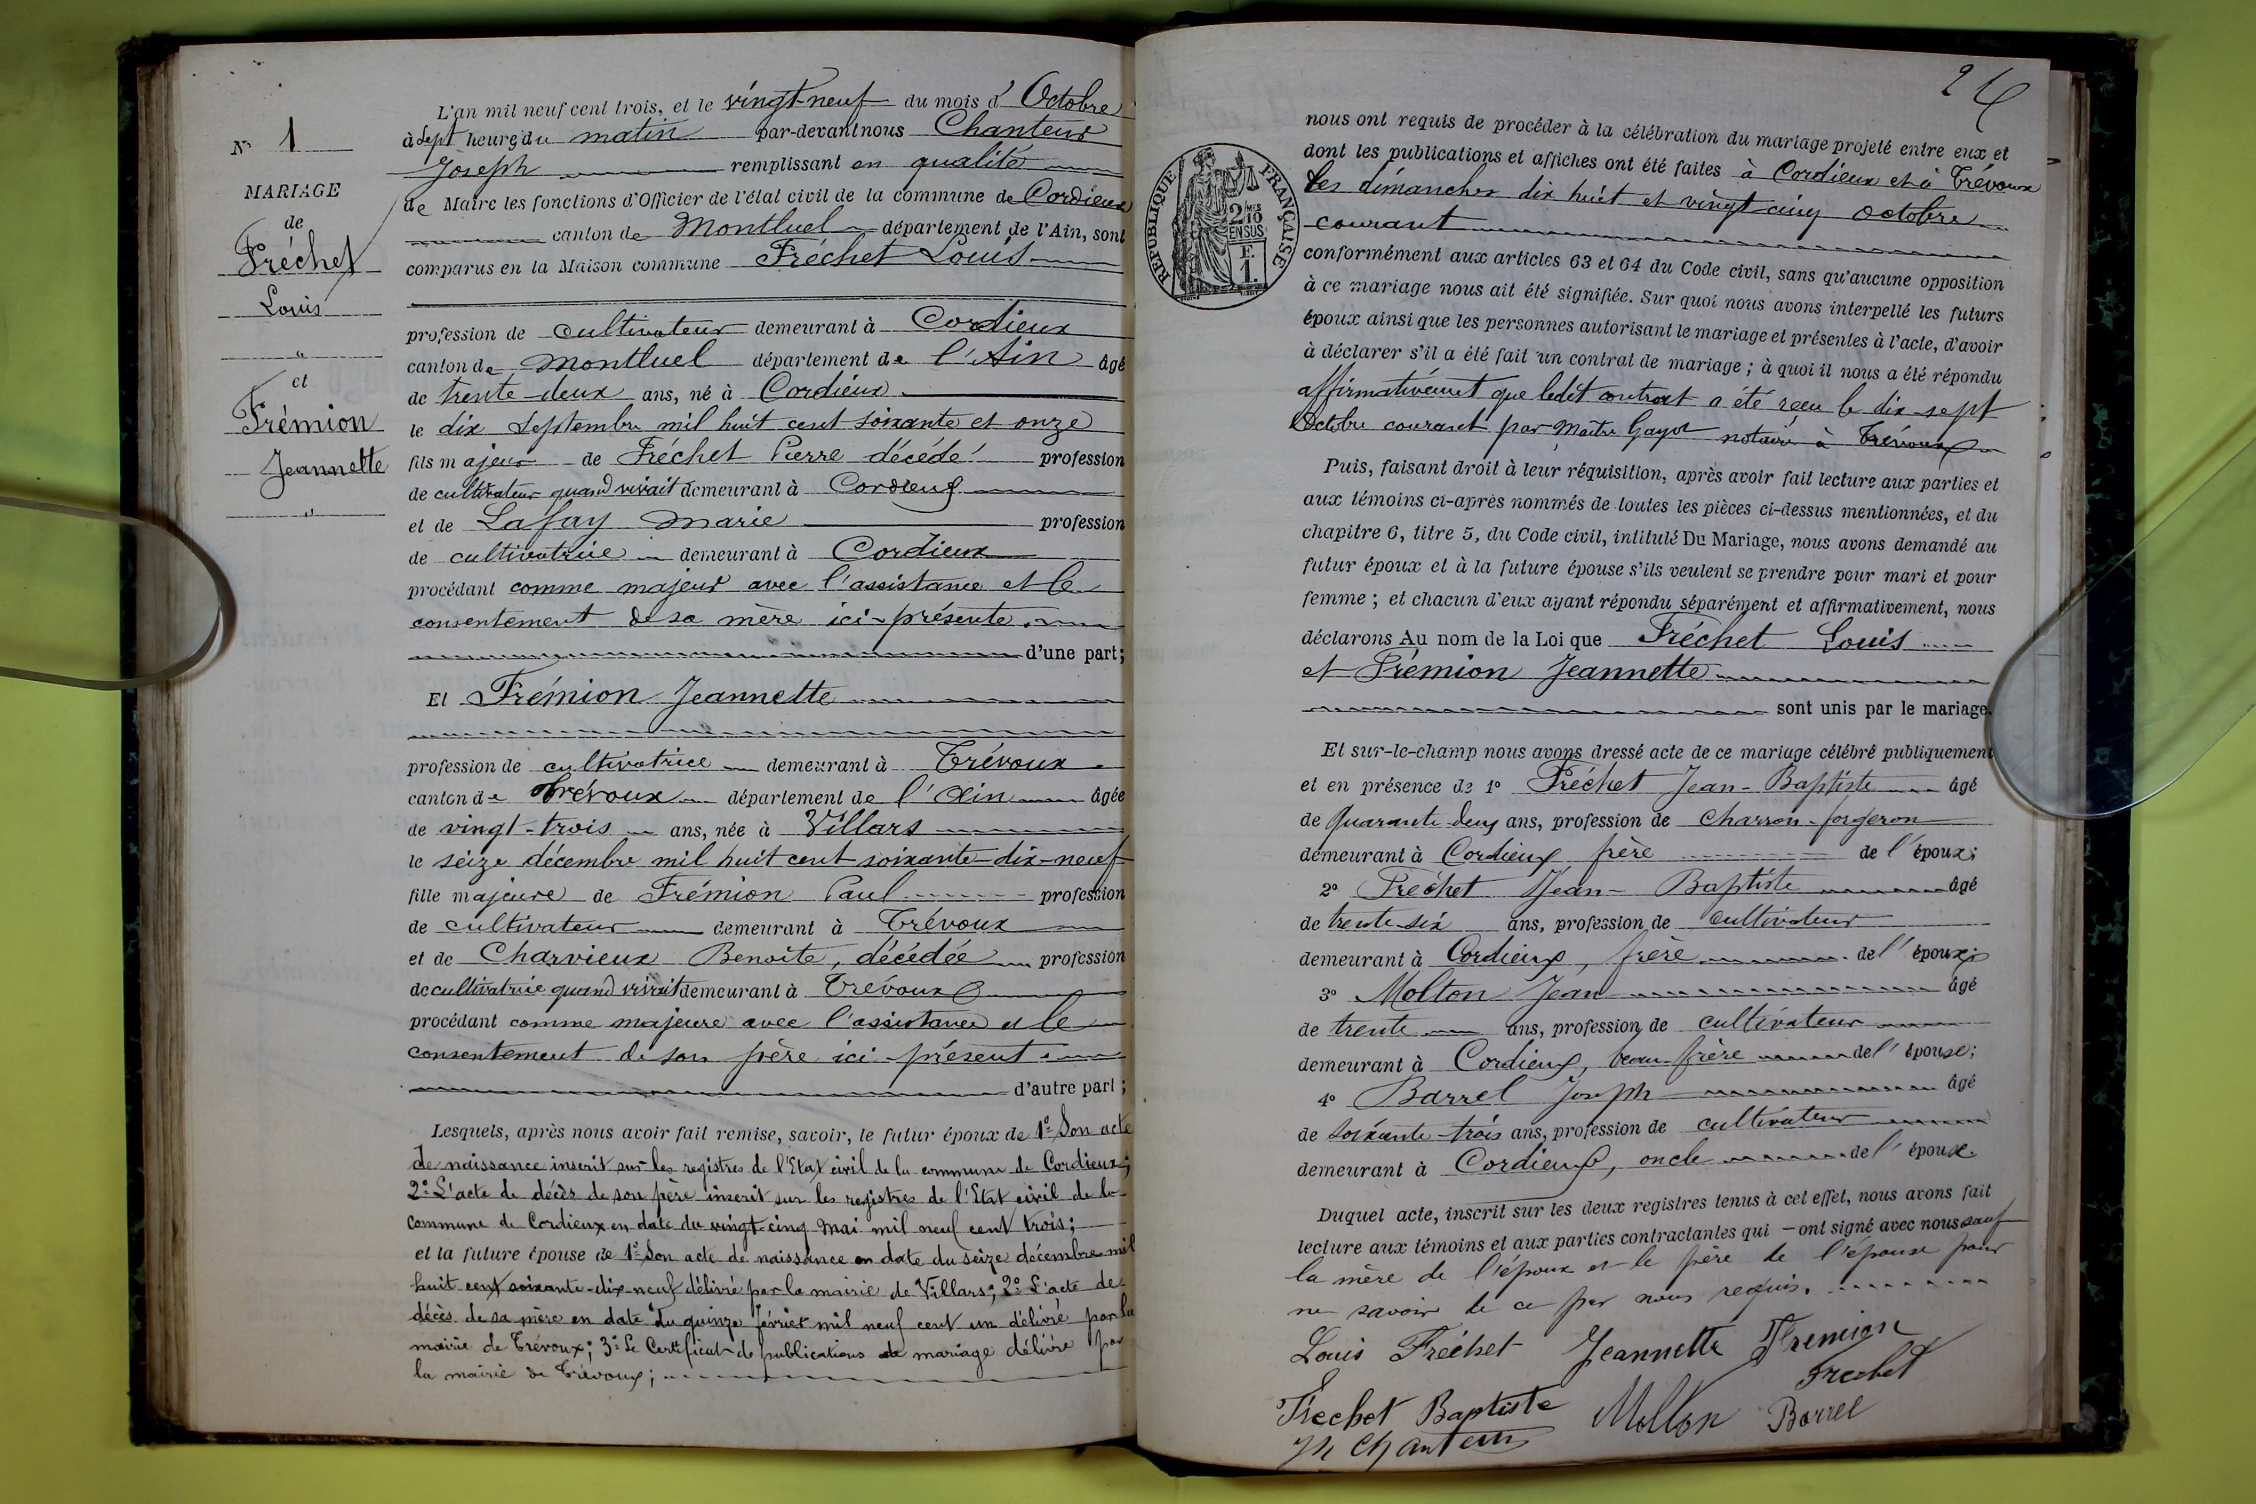 L'an mil neuf cent trois, et le vingt-neuf du mois d' Octobre
à Sept heures du matin par-devant nous Chanteur
Joseph remplissant en qualité
de Maire les fonctions d'Officier de l'état civil de la commune de Cordieux
canton de Montluel département de l'Ain, sont
comparus en la Maison commune Fréchet Louis
profession de cultivateur demeurant à Cordieux
canton de Montluel département de l'Ain âgé
de trente-deux ans, né à Cordieux
le dix Septembre mil huit cent soixante et onze
fils majeur de Fréchet Pierre décédé profession
de cultivateur quand vivait demeurant à Cordieux
et de Lafay Marie profession
de cultivatrice demeurant à Cordieux
procédant comme majeur avec l'assistance et le
consentement de sa mère ici-présente.
d'une part;
Et Frémion Jeannette
profession de cultivatrice demeurant à Trévoux
canton de Trévoux département de l'Ain âgée
de vingt-trois ans, née à Villars
le seize décembre mil huit cent soixante-dix-neuf
fille majeure de Frémion Paul profession
de cultivateur demeurant à Trévoux
et de Charvieux Benoîte, décédée profession
de cultivatrice quand vivait demeurant à Trévoux
procédant comme majeure avec l'assistance et le
consentement de son père ici-présent.
d'autre part;
Lesquels, après nous avoir fait remise, savoir, le futur époux de 1° Son acte
de naissance inscrit sur les registres de l'Etat civil de la commune de Cordieux;
2° L'acte de décès de son père inscrit sur les registres de l'Etat civil de la
commune de Cordieux en date du vingt-cinq Mai mil neuf cent trois;
et la future épouse de 1° Son acte de naissance en date du seize décembre mil
huit cent soixante-dix-neuf délivré par la mairie de Villars; 2° L'acte de
décès de sa mère en date du quinze février mil neuf cent un délivré par la
mairie de Trévoux; 3° Le Certificat de publications de mariage délivré par
la mairie de Trévoux;
N° 1
MARIAGE
de
Fréchet
Louis
"
et
Frémion
Jeannette
"
26
RÉPUBLIQUE FRANÇAISE
2 MES
10
EN SUS
F.
1.
nous ont requis de procéder à la célébration du mariage projeté entre eux et
dont les publications et affiches ont été faites à Cordieux et à Trévoux
les dimanches dix huit et vingt-cinq octobre
courant
conformément aux articles 63 et 64 du Code civil, sans qu'aucune opposition
à ce mariage nous ait été signifiée. Sur quoi nous avons interpellé les futurs
époux ainsi que les personnes autorisant le mariage et présentes à l'acte, d'avoir
à déclarer s'il a été fait un contrat de mariage; à quoi il nous a été répondu
affirmativement que ledit contrat a été reçu le dix-sept
Octobre courant par Maître Gayot notaire à Trévoux
Puis, faisant droit à leur réquisition, après avoir fait lecture aux parties et
aux témoins ci-après nommés de toutes les pièces ci-dessus mentionnées, et du
chapitre 6, titre 5, du Code civil, intitulé Du Mariage, nous avons demandé au
futur époux et à la future épouse s'ils veulent se prendre pour mari et pour
femme; et chacun d'eux ayant répondu séparément et affirmativement, nous
déclarons Au nom de la Loi que Fréchet Louis
et Frémion Jeannette
sont unis par le mariage.
Et sur-le-champ nous avons dressé acte de ce mariage célébré publiquement
et en présence de 1° Fréchet Jean-Baptiste âgé
de quarante deux ans, profession de charron-forgeron
demeurant à Cordieux frère de l'époux;
2° Fréchet Jean-Baptiste âgé
de trente-six ans, profession de cultivateur
demeurant à Cordieux, frère de l'époux;
3° Molton Jean âgé
de trente ans, profession de cultivateur
demeurant à Cordieux, beau-frère de l'épouse;
4° Barrel Joseph âgé
de soixante-trois ans, profession de cultivateur
demeurant à Cordieux, oncle de l'époux.
Duquel acte, inscrit sur les deux registres tenus à cet effet, nous avons fait
lecture aux témoins et aux parties contractantes qui ont signé avec nous sauf
la mère de l'époux et le père de l'épouse pour
ne savoir de ce par nous requis.
Louis Fréchet Jeannette Fremion
Frechet
Frechet Baptiste Molton Barrel
Chanteur